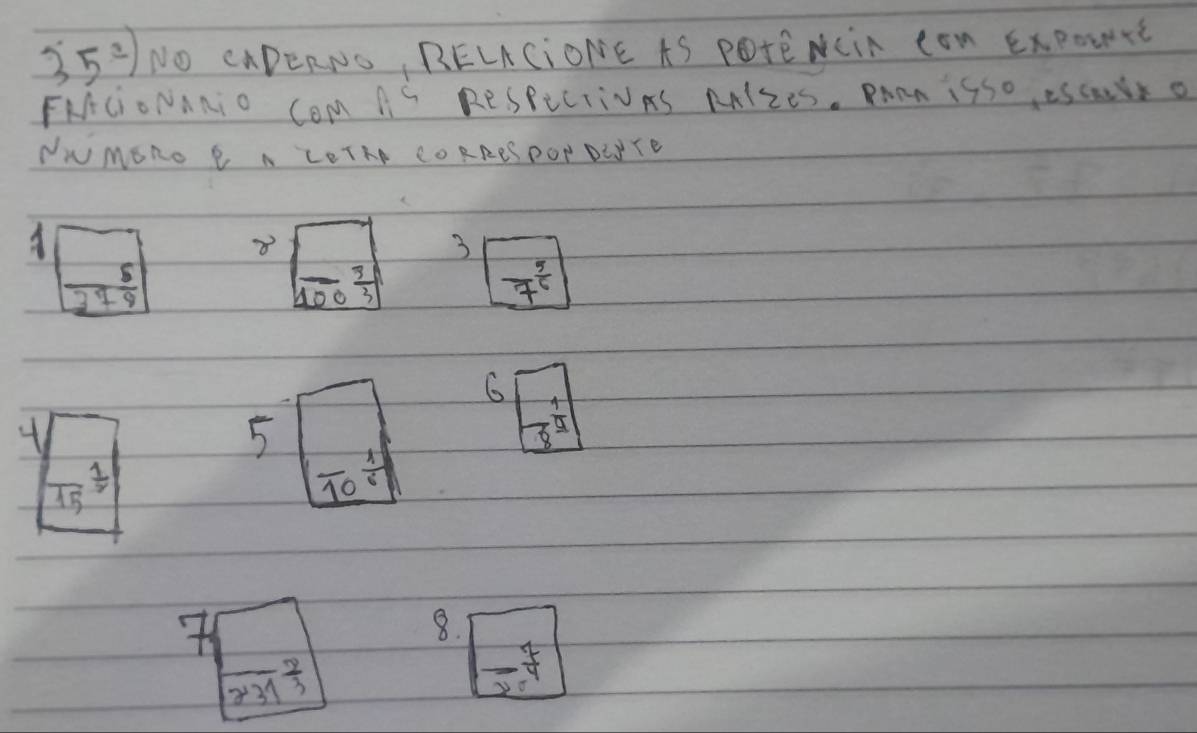 35ª) NO CADERNO, RELACIONE AS POTÊNCIA COM EXPOENTE
FRACIONARIO COM AS RESPECTIVAS RAÍZES. PARA ISSO, ESCREVA O
NUMERO E A LETRA CORRESPONDENTE
1 2 3
100 7
4 5 6
15 10 1/6 8
7 8.
231 2/3 7/4